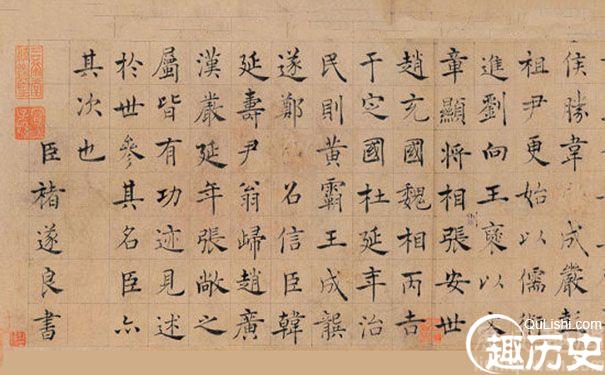 侯勝韋成嚴彭
祖尹更始以儒術
進劉向王褒以文
章顯將相張安世
趙充國魏相丙吉
于定國杜延年治
民則黃霸王成龔
遂鄭召信臣韓
延壽尹翁歸趙廣
漢嚴延年張敞之
屬皆有功迹見述
於世參其名臣亦
其次也
臣褚遂良書
QuLishi.com
趣历史